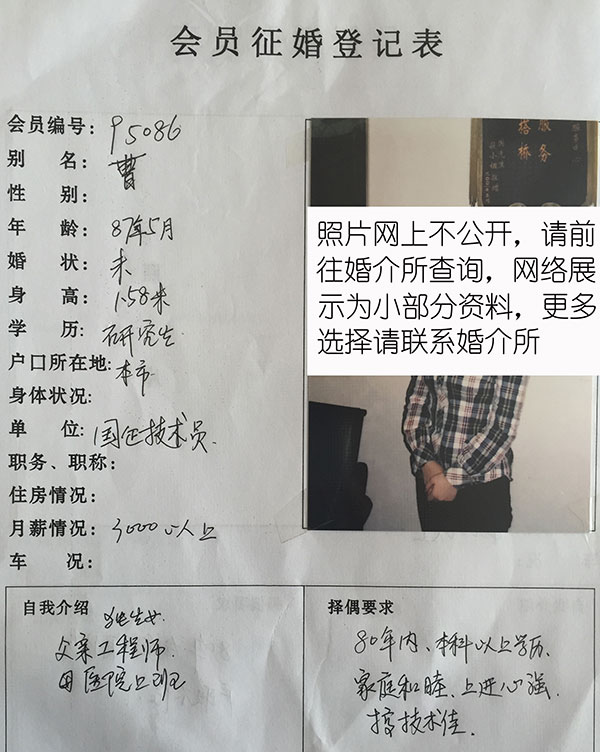 会员征婚登记表
会员编号: P5086
别 名: 曹
性 别:
年 龄: 87年5月
婚 状: 未
身 高: 1.58米
学 历: 研究生
户口所在地: 本市
身体状况:
单 位: 国企技术员.
职务、职称:
住房情况:
月薪情况: 3000以上
车 况:
服务
搭桥
照片网上不公开，请前
往婚介所查询，网络展
示为小部分资料，更多
选择请联系婚介所
自我介绍 独生女.
父亲工程师.
母医院上班
择偶要求
80年内、本科以上学历.
家庭和睦、上进心强.
技术佳.